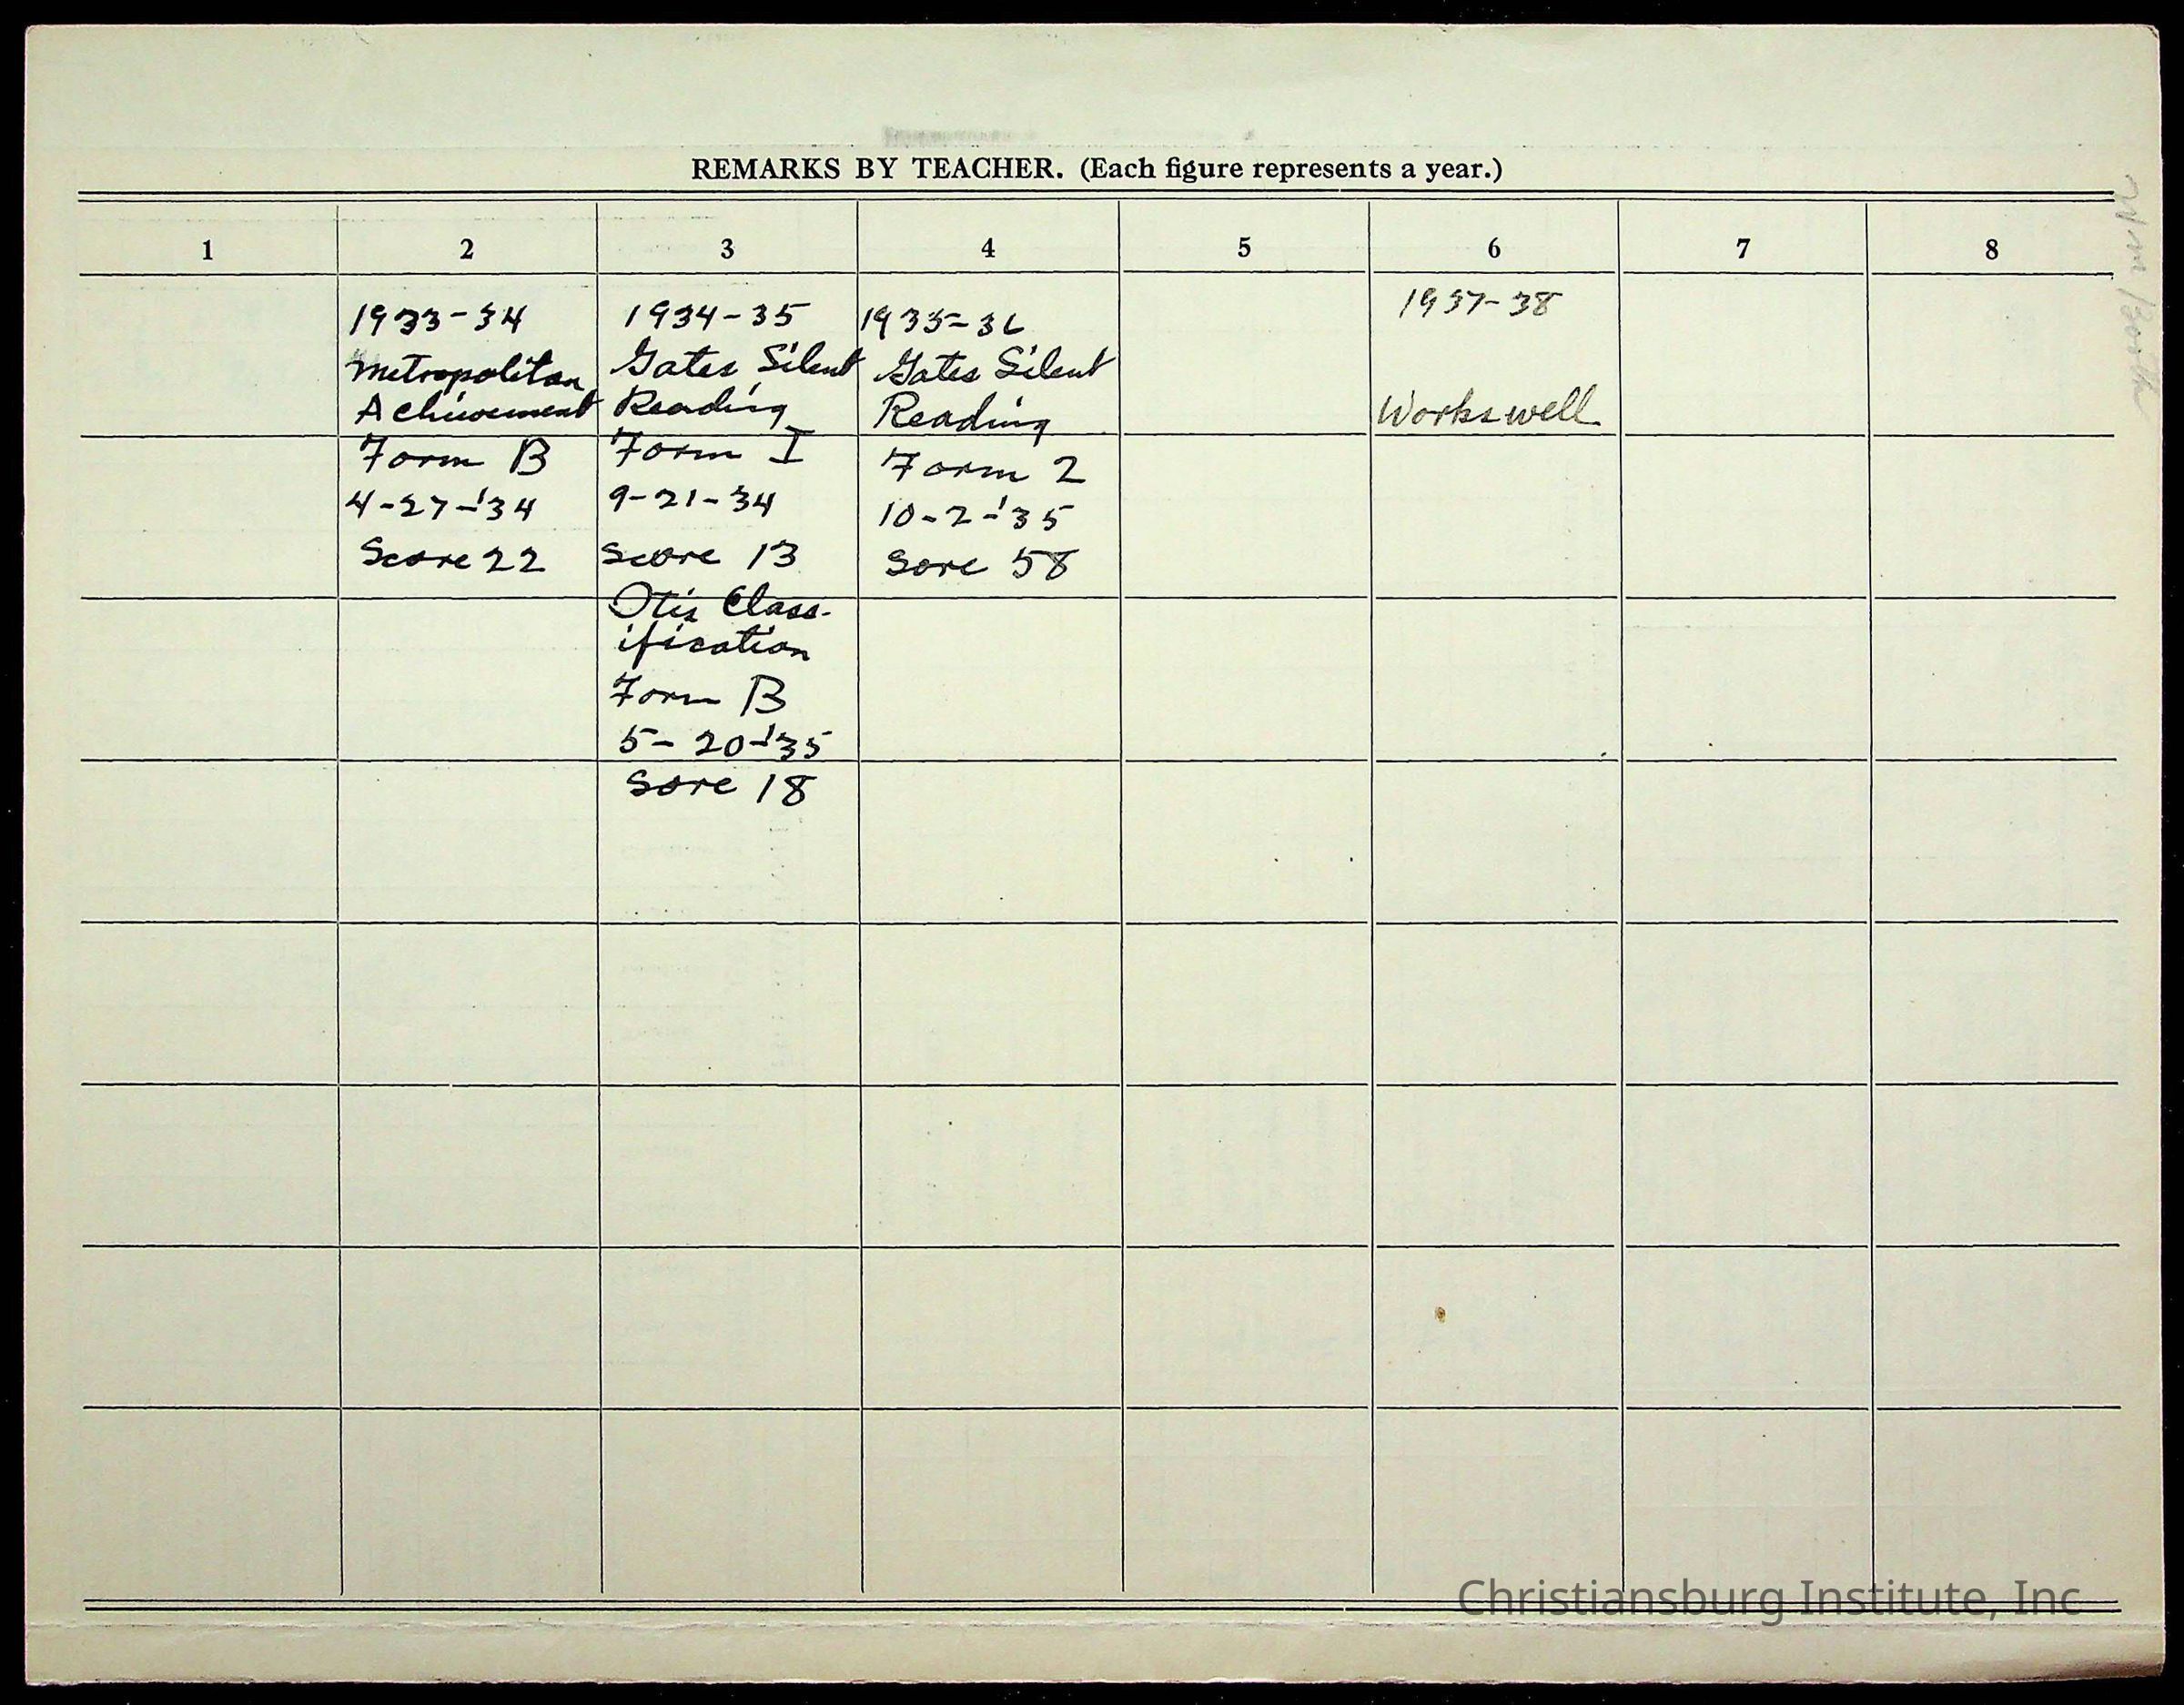 REMARKS BY TEACHER. (Each figure represents a year.)
1 2 3 4 5 6 7 8
1933-34
Metropolitan
Achievement
Form B
4-27-'34
Score 22
1934-35
Gates Silent
Reading
Form I
9-21-34
Score 13
Otis Class-
ification
Form B
5-20-'35
Sore 18
1935-36
Gates Silent
Reading
Form 2
10-2-'35
Sore 58
1937-38
Works well
Christiansburg Institute, Inc